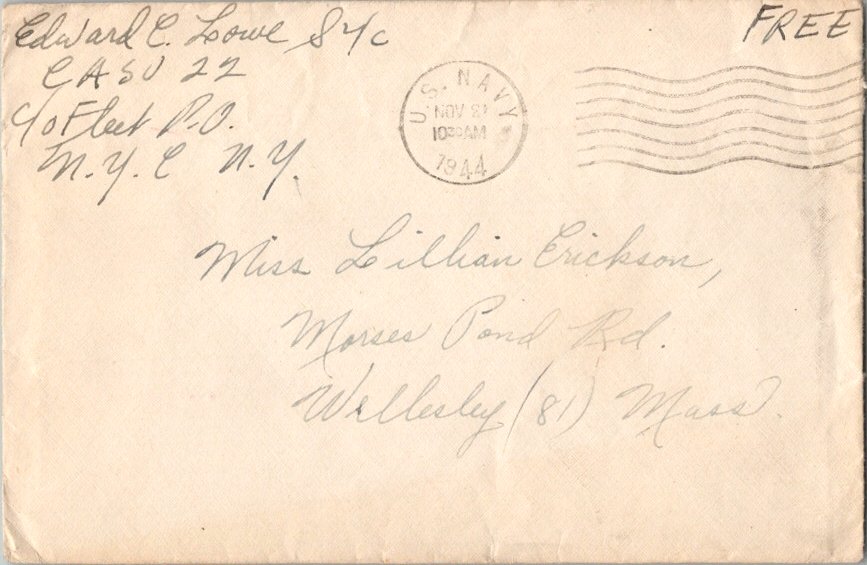 Edward C. Lowe S2/c
CASU 22
c/o Fleet P.O.
N.Y.C N.Y.
FREE
U.S. NAVY
NOV 21
1030 AM
1944
Miss Lillian Erickson,
Morses Pond Rd.
Wellesley (81) Mass.